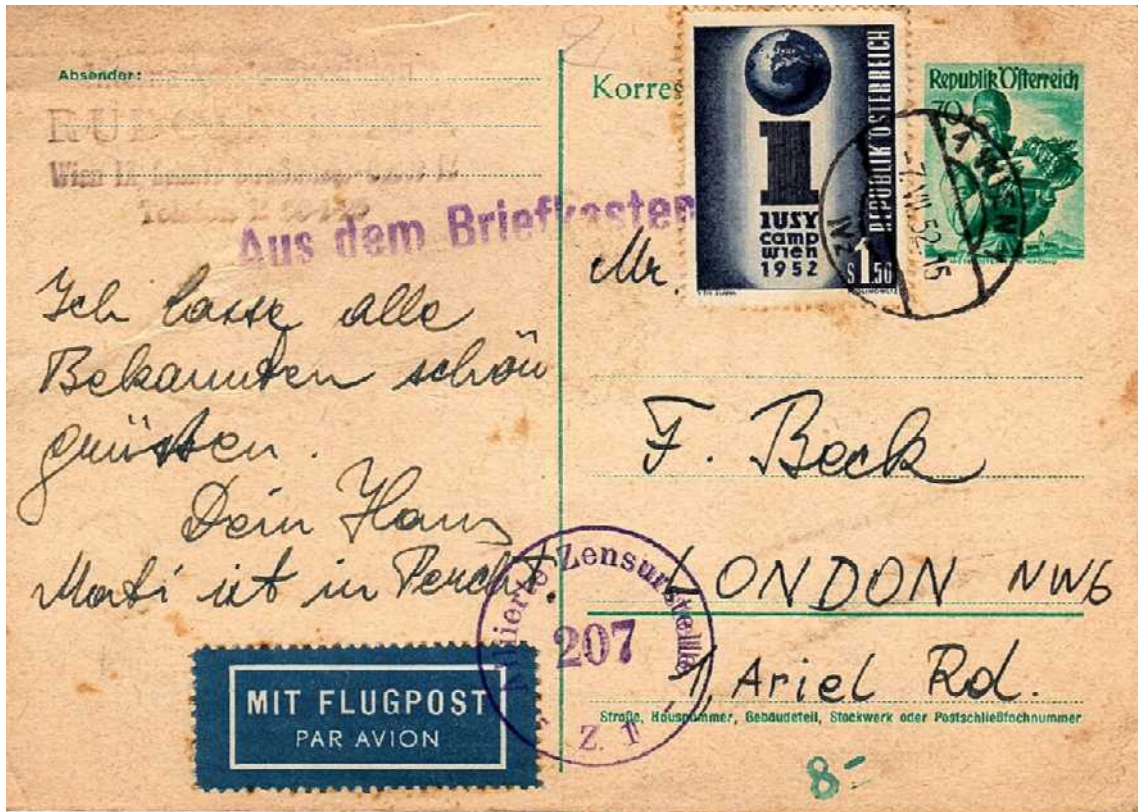 Absender:
Wien
Aus dem Briefkasten
Ich lasse alle
Bekannten schön
grüssen.
Dein Hans
Mati ist in Percht.
MIT FLUGPOST
PAR AVION
Korres
REPUBLIK ÖSTERREICH
1
IUSY
camp
wien
1952
S 1.50
Republik Österreich
70
1 WIEN
7.VII.52-15
Mr.
F. Beck
LONDON NW6
1, Ariel Rd.
Straße, Hausnummer, Gebäudeteil, Stockwerk oder Postschließfachnummer
Alliierte Zensurstelle
207
Z. 1
8-